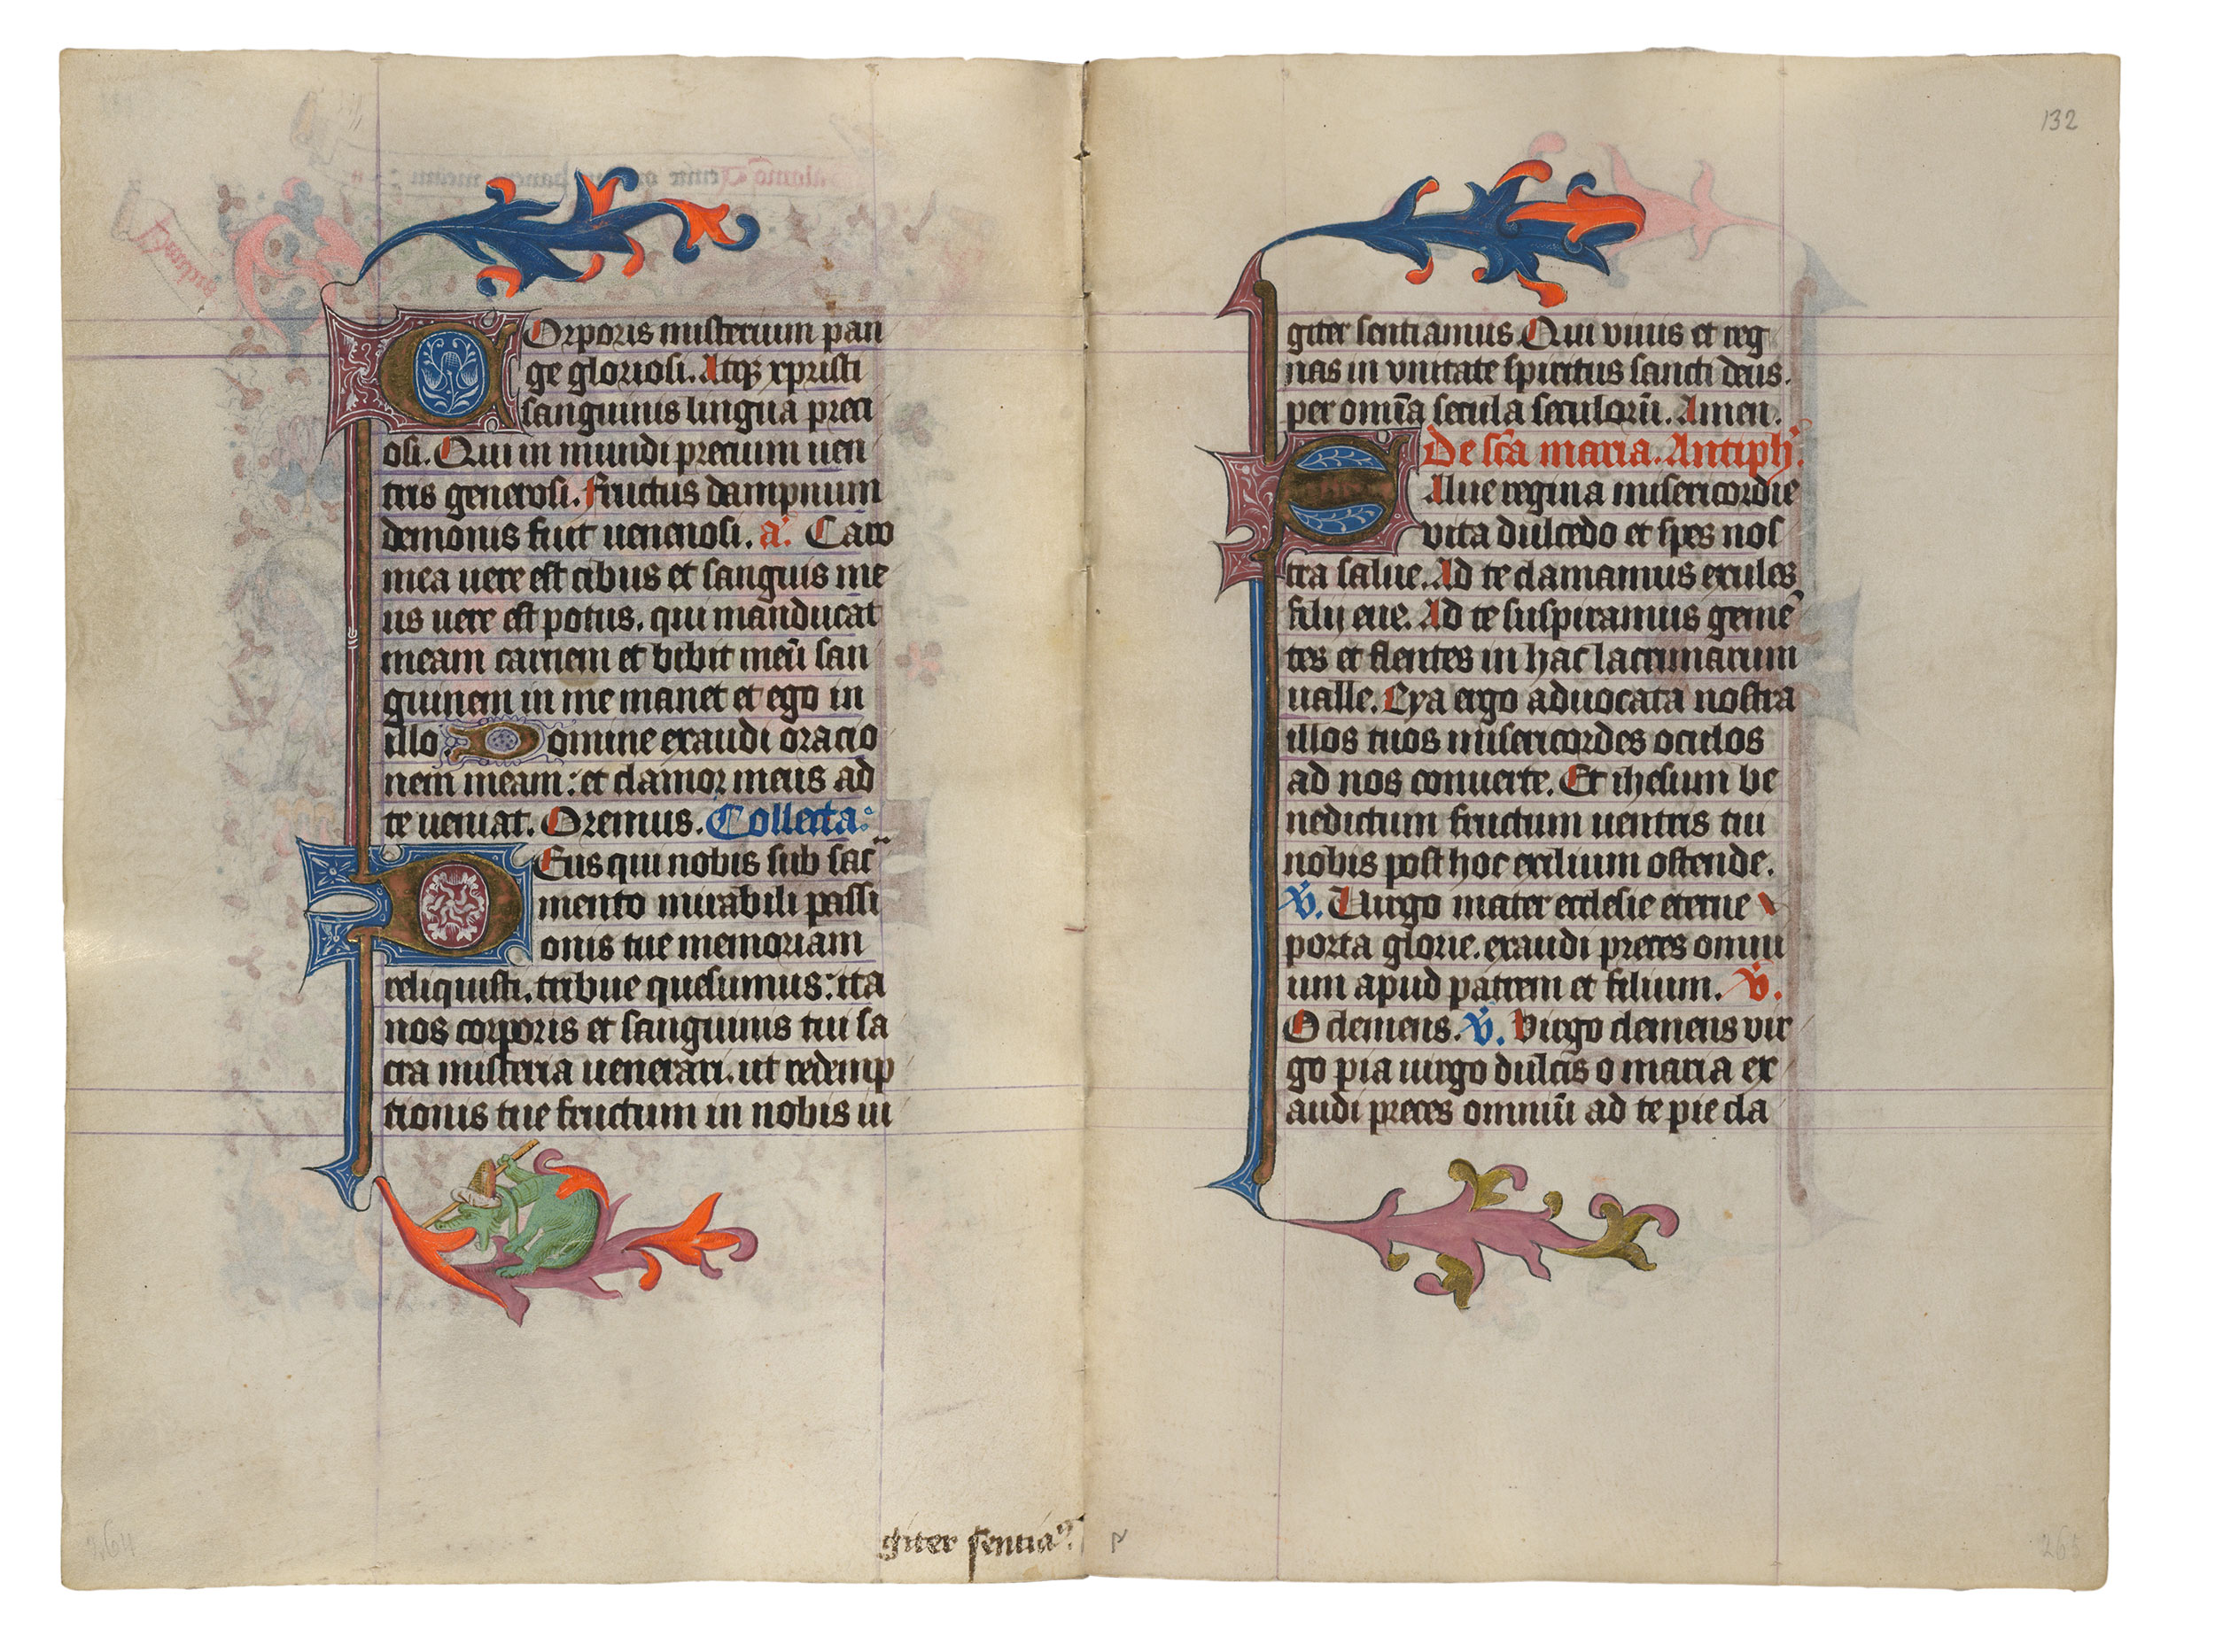 Corporis misterium pan
ge gloriosi. Atqꝫ xpristi
sanguinis lingua preci
osi. Qui in mundi precium uen
tris generosi. Fructus dampnum
demonis fuit uenenosi. a. Caro
mea uere est cibus et sanguis me
us uere est potus. qui manducat
meam carnem et bibit meū san
guinem in me manet et ego in
illo. Domine exaudi oracio
nem meam: et clamor meus ad
te ueniat. Oremus. Collecta:
Deus qui nobis sub sac
mento mirabili passi
onis tue memoriam
reliquisti. tribue quesumus: ita
nos corporis et sanguinis tui sa
cra misteria uenerari. ut redemp
tionis tue fructum in nobis iu
giter sentia
132
giter sentiamus. Qui viuis et reg
nas in vnitate spiritus sancti deus.
per omīa secula seculorū. Amen.
De scā maria. Antiph.
Salue regina misericordie
vita dulcedo et spes nos
tra salue. Ad te clamamus exules
filij eue. Ad te suspiramus gemē
tes et flentes in hac lacrimarum
ualle. Eya ergo aduocata nostra
illos tuos misericordes oculos
ad nos conuerte. Et ihesum be
nedictum fructum uentris tui
nobis post hoc exilium ostende.
V. Uirgo mater ecclesie eterne
porta glorie. exaudi preces omni
um apud patrem et filium. V.
O clemens. V. Virgo clemens vir
go pia uirgo dulcis o maria ex
audi preces omniū ad te pie cla
264
265